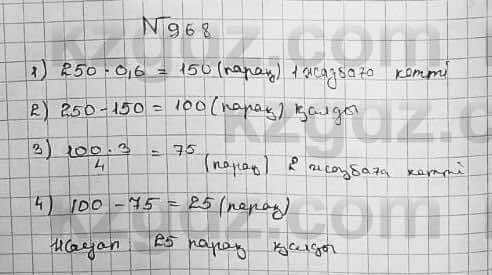 №968
1) 250 · 0,6 = 150 (парақ) 1 жазбаға кетті
2) 250 - 150 = 100 (парақ) қалды
3) 100 · 3 / 4 = 75 (парақ) 2 жазбаға кетті
4) 100 - 75 = 25 (парақ)
Жауап: 25 парақ қалды
kzgdz.com
kzgdz.com